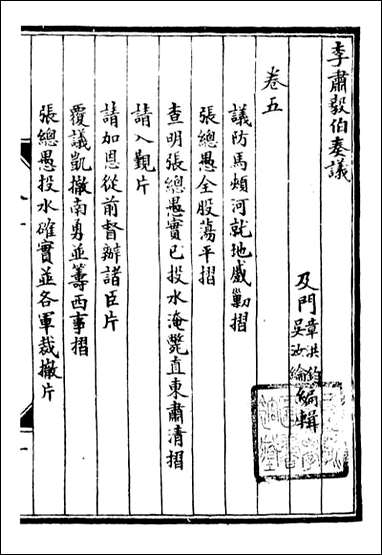 李肅毅伯奏議
及門章洪鈞吳汝綸編輯
卷五
議防馬頰河就地威勦摺
張總愚全股蕩平摺
查明張總愚實已投水淹斃直東肅清摺
請入覲片
請加恩從前督辦諸臣片
覆議凱撤南勇並籌西事摺
張總愚投水確實並各軍裁撤片